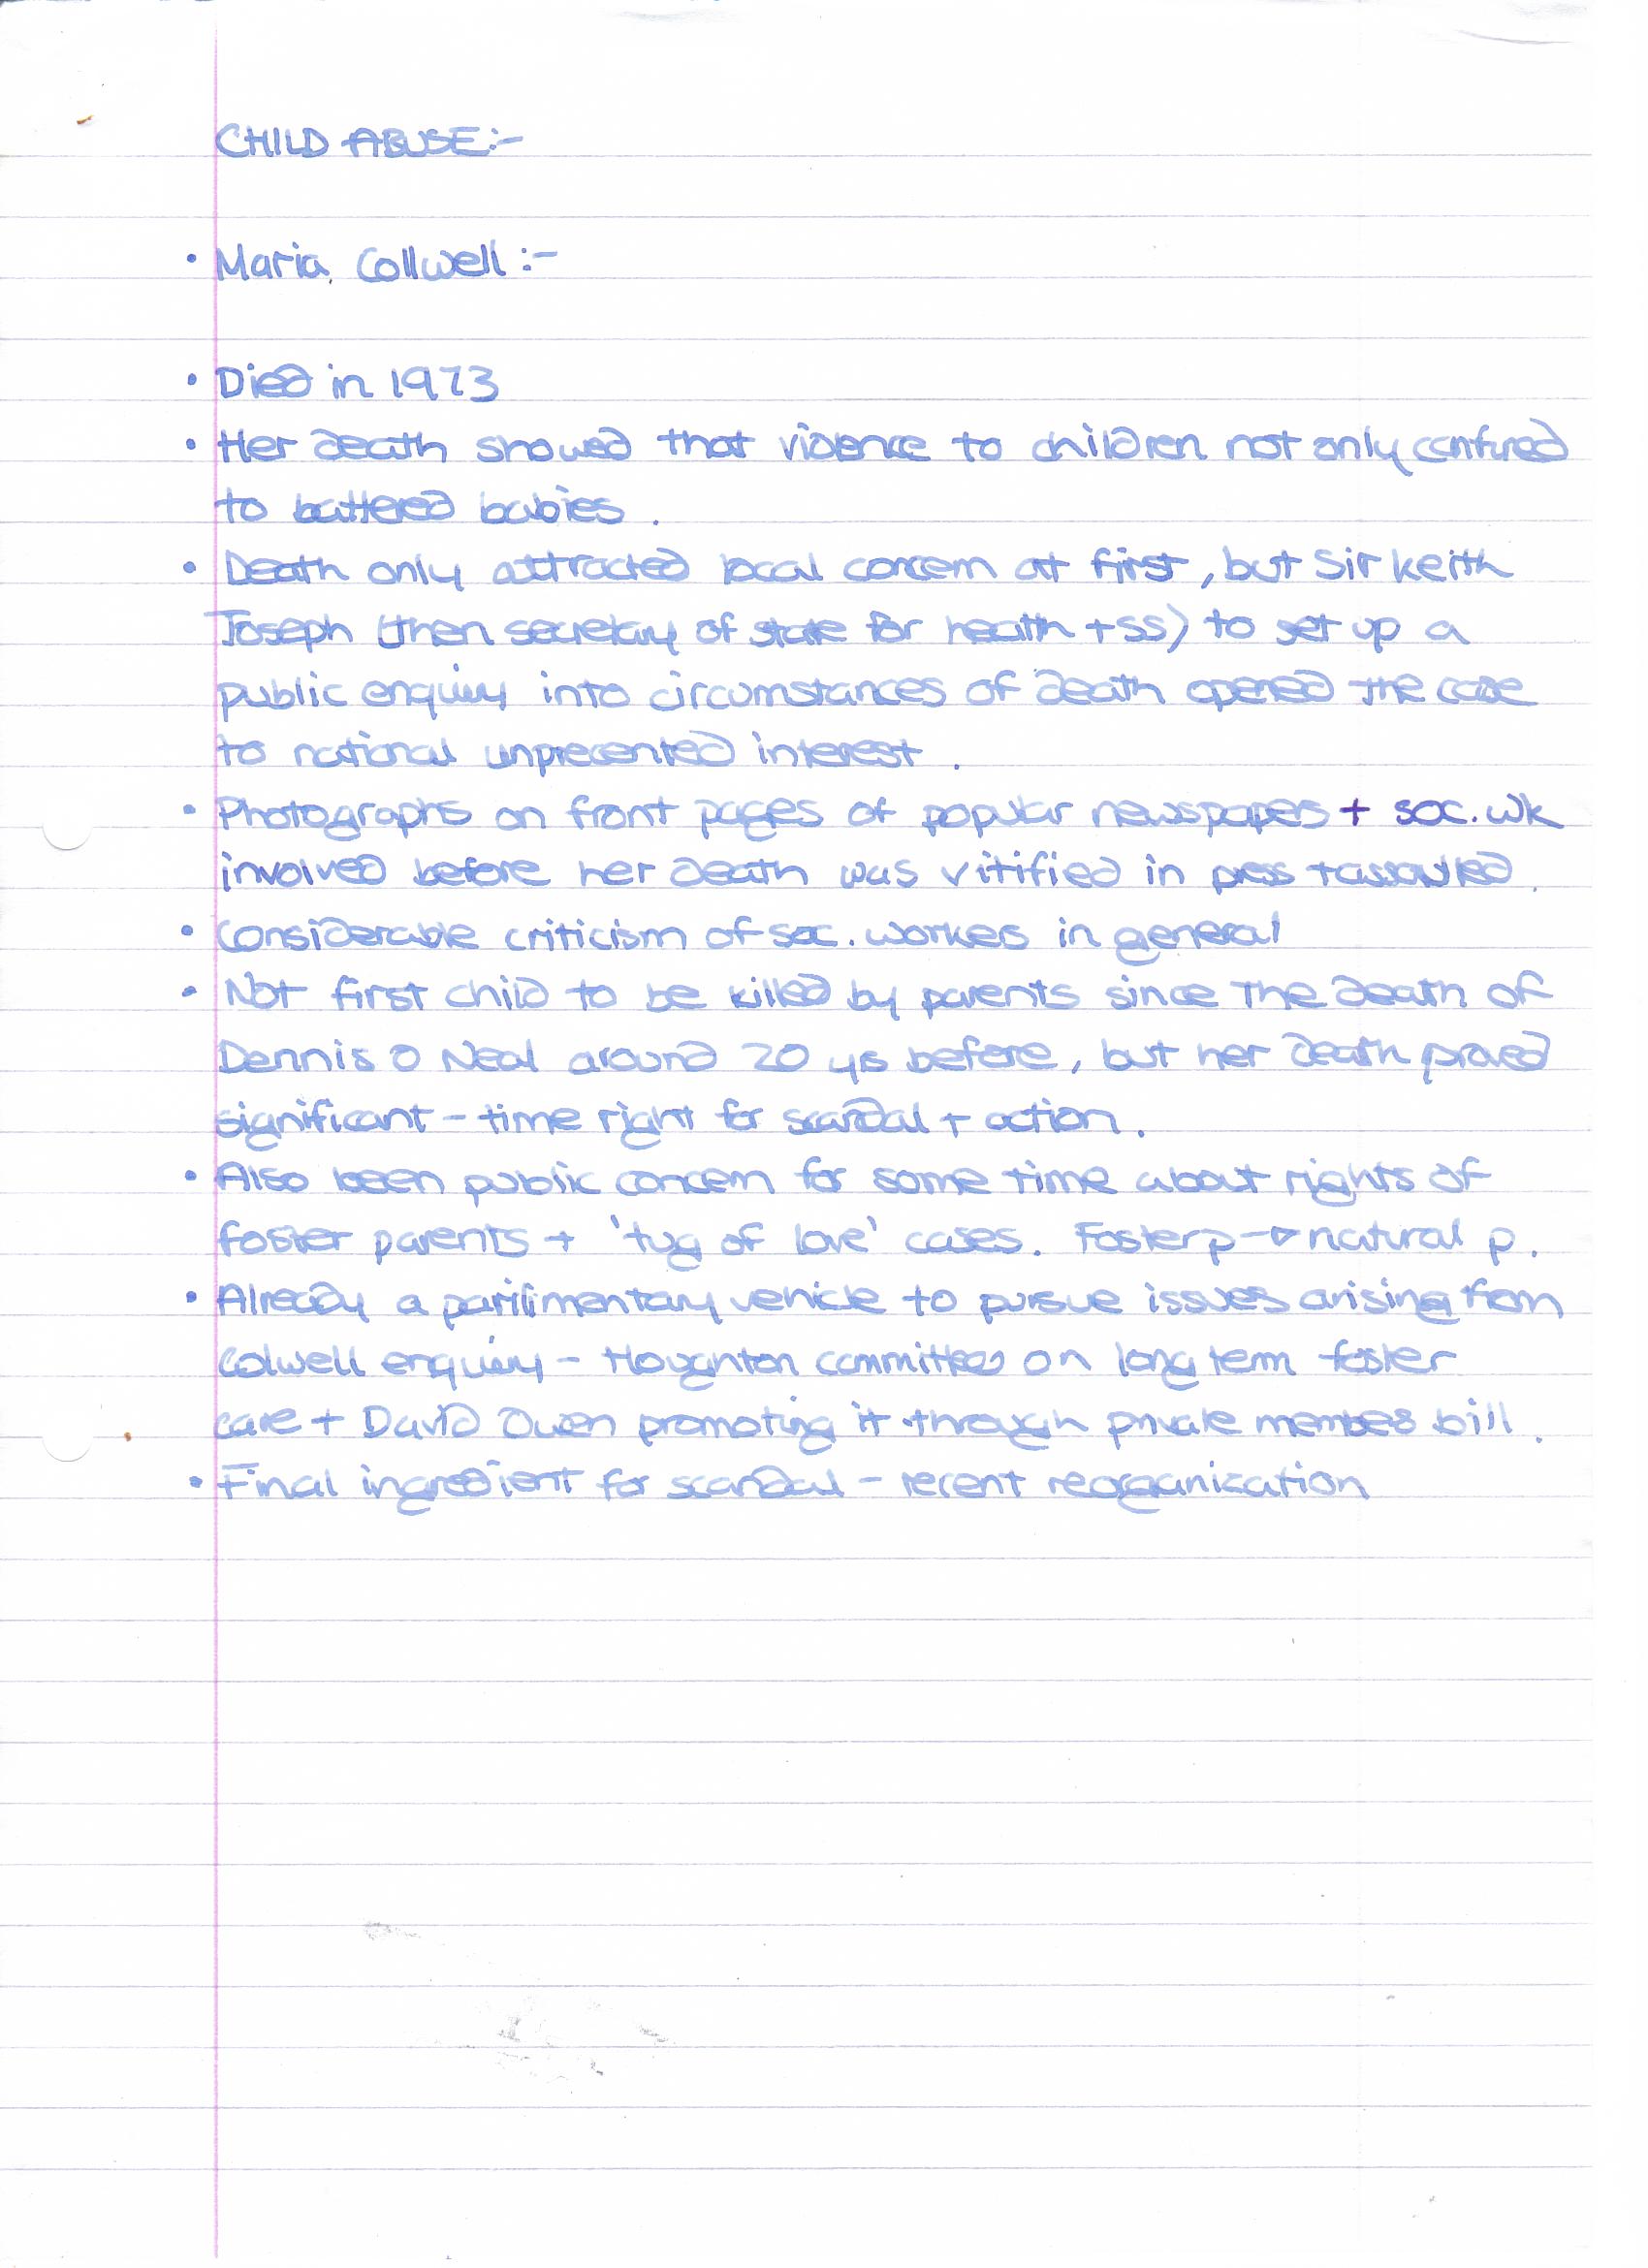 CHILD ABUSE:-
• Maria Collwell :-
• Died in 1973
• Her death showed that violence to children not only confined
to battered babies.
• Death only attracted local concern at first, but Sir Keith
Joseph (then secretary of state for health + SS) to set up a
public enquiry into circumstances of death opened the case
to national unprecented interest.
• Photographs on front pages of popular newspapers + soc. wk
involved before her death was vitified in press + assaulted.
• Considerable criticism of soc. workers in general
• Not first child to be killed by parents since the death of
Dennis O Neal around 20 yrs before, but her death proved
significant - time right for scandal + action.
• Also been public concern for some time about rights of
foster parents + 'tug of love' cases. Foster p → natural p.
• Already a parilimentary vehicle to pursue issues arising from
Colwell enquiry - Houghton committee on long term foster
care + David Owen promoting it through private members bill.
• Final ingredient for scandal - recent reorganization